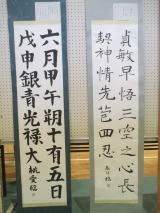 六月甲午朔十有五日
戊申銀青光禄大
貞敏早悟三空之心長
契神情先苞四忍